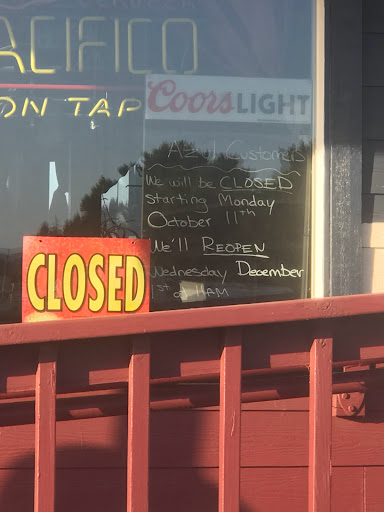 PACIFICO
ON TAP
Coors LIGHT
Customers
We will be CLOSED
starting Monday
October 11th
We'll REOPEN
Wednesday December
1st at 11AM
CLOSED